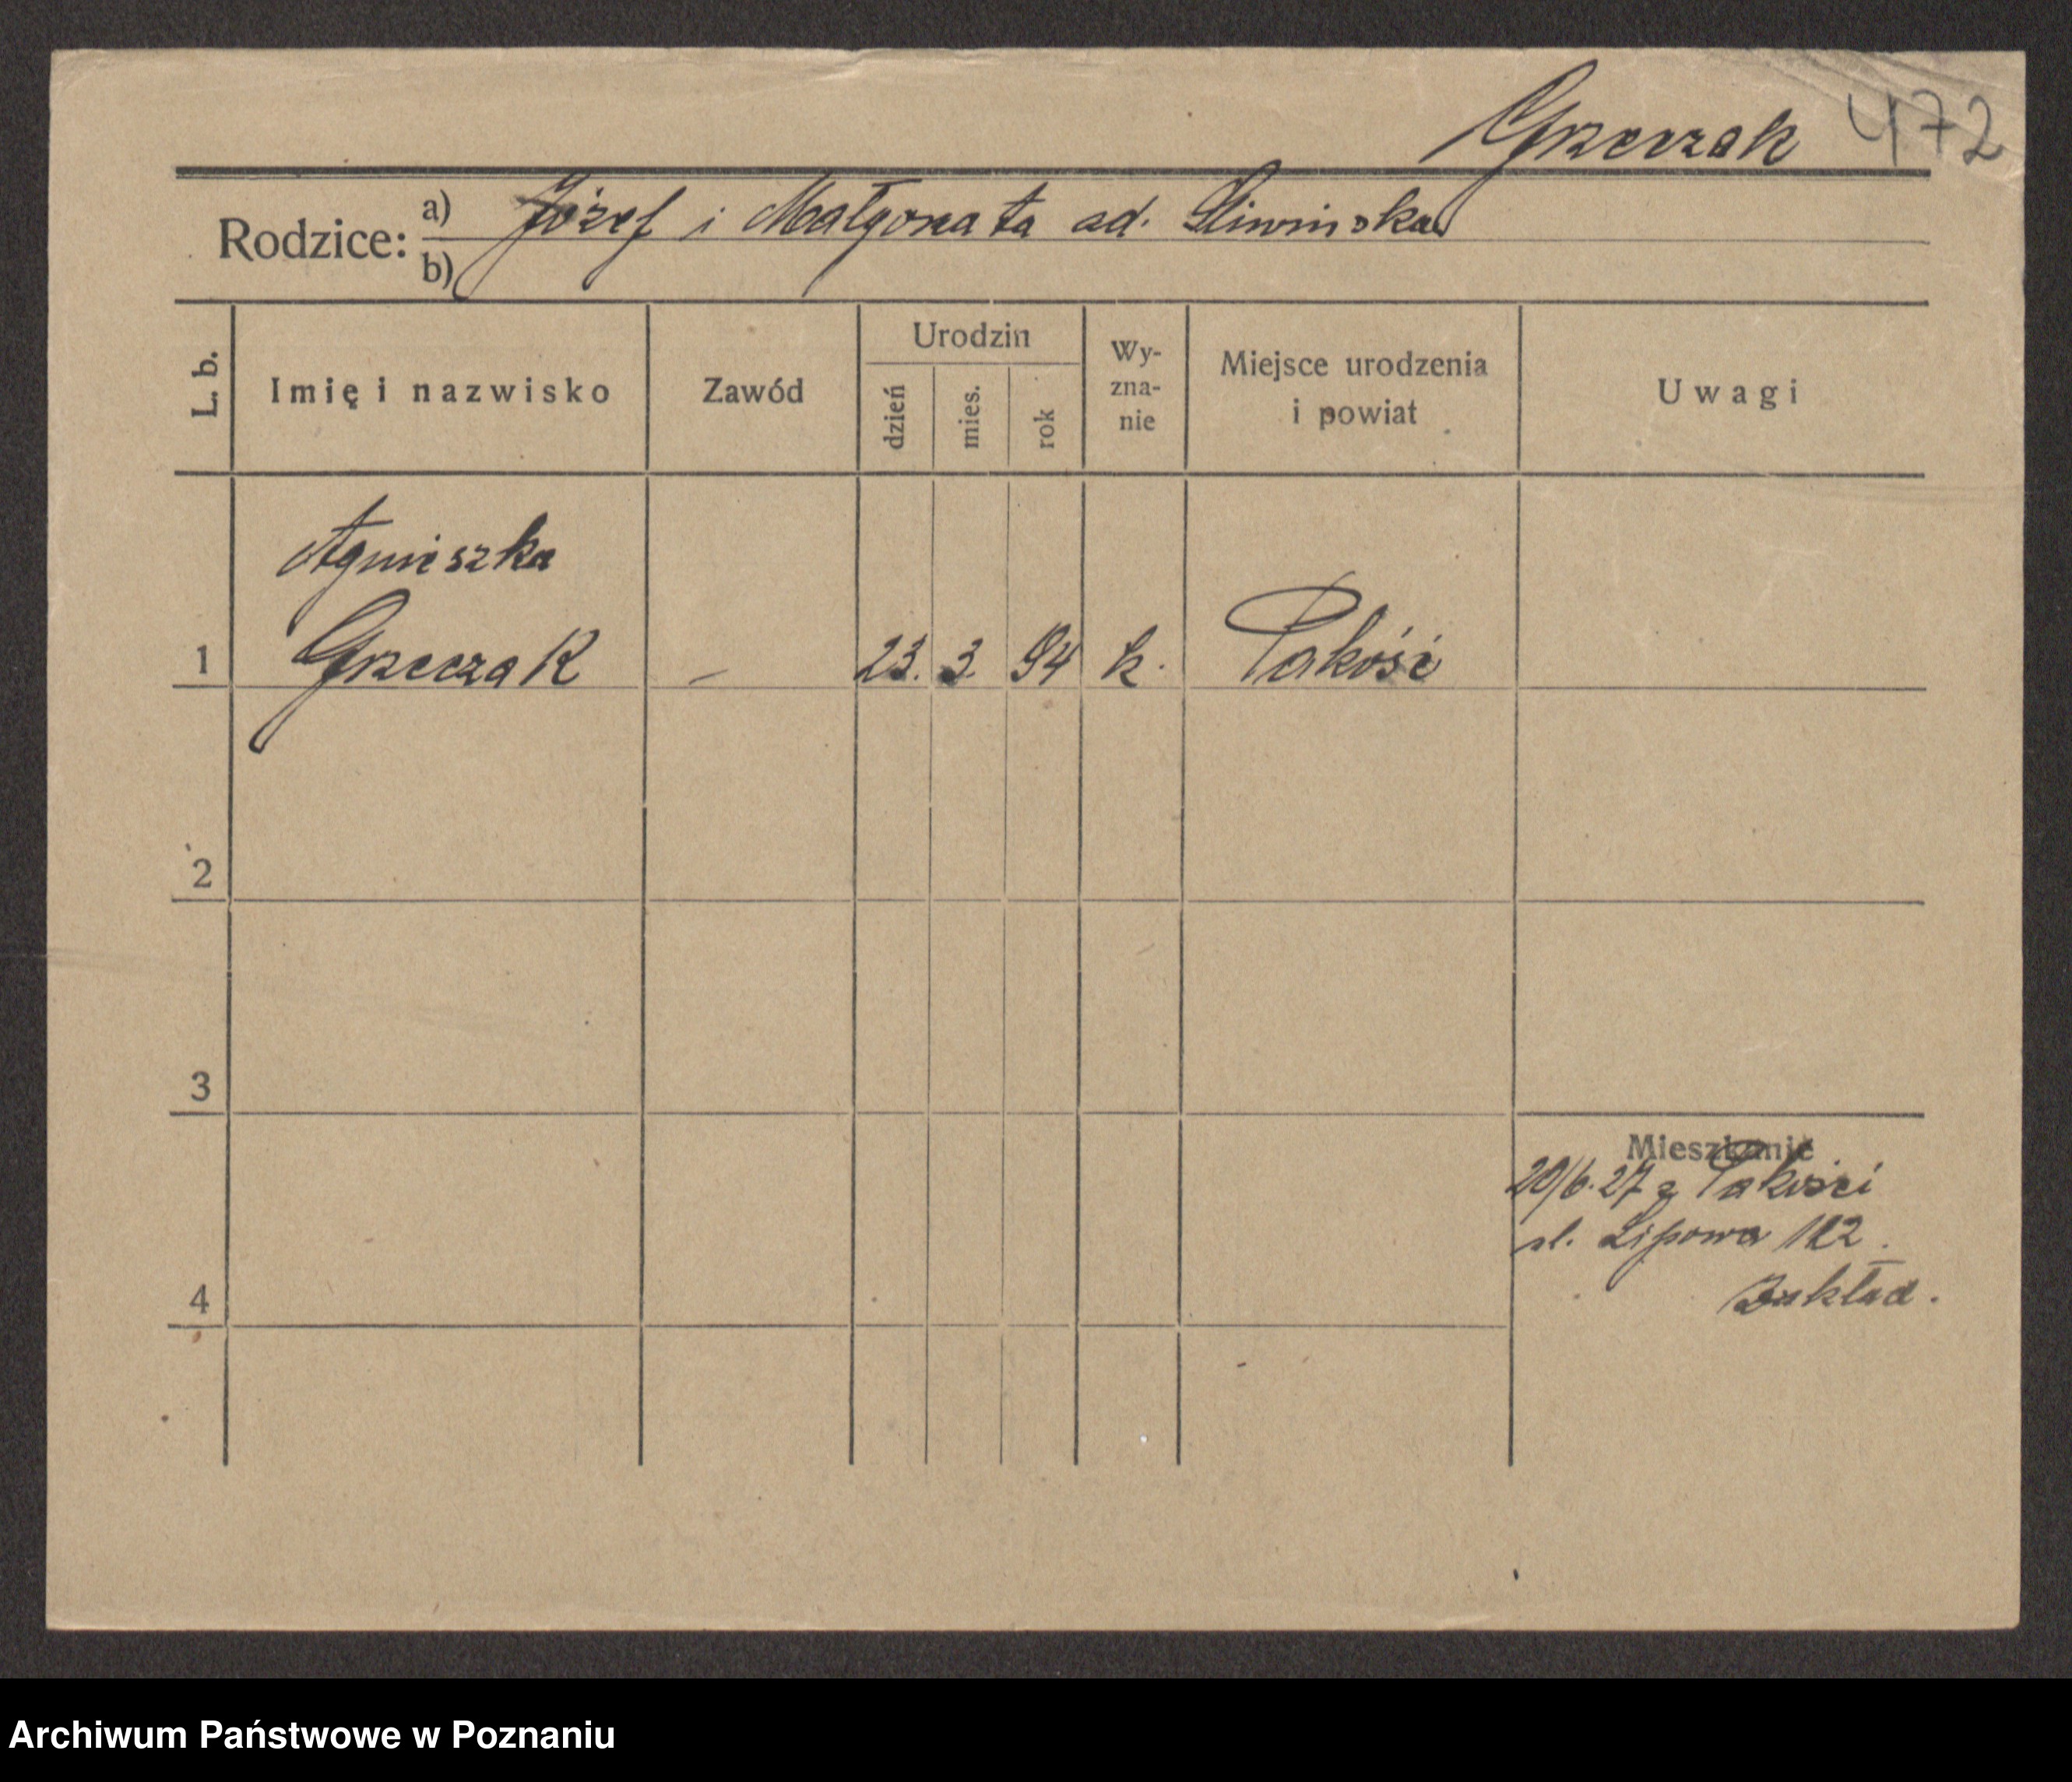 Grzeczak 472
Rodzice: a) Józef i Małgorzata ad. Sliwinska
b)
L. b. Imię i nazwisko Zawód Urodzin dzień mies. rok Wyzna-nie Miejsce urodzenia i powiat Uwagi
Agnieszka
1 Grzeczak - 23. 3. 94 k. Pakość
2
3
Mieszkanie
20/6. 27 z Pakości
ul. Lipowa 112.
4 Zakład.
Archiwum Państwowe w Poznaniu